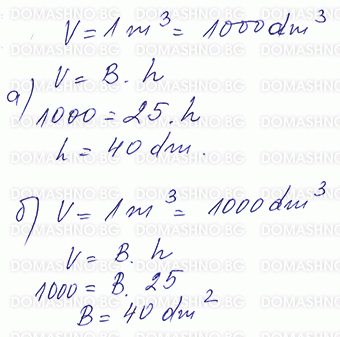 V = 1 m³ = 1000 dm³
V = B . h
а) 1000 = 25 . h
h = 40 dm.
б) V = 1 m³ = 1000 dm³
V = B . h
1000 = B . 25
B = 40 dm²
DOMASHNO.BG